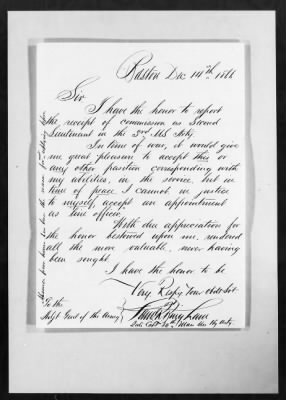 Boston Dec 14th 1866
Sir
I have the honor to report
the receipt of commission as Second
Lieutenant in the 3rd U.S. Arty.
In time of war, it would give
me great pleasure to accept this or
any other position corresponding with
my abilities in the service, but in
time of peace I cannot, in justice
to myself, accept an appointment
as this officer.
With due appreciation for
the honor bestowed upon me, rendered
all the more valuable, never having
been sought
I have the honor to be
Very Respy Your Obdt Svt
To the
Adjt Genl of the Army
Late Capt 10th Mass